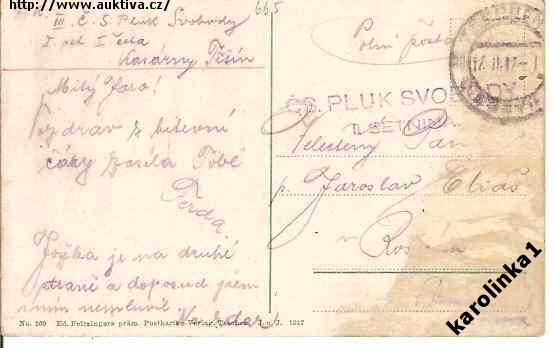 ( www.auktiva.cz )
665
III. Č. S. Pluk Svobody
I. pol I. četa
Kasárny Těšín
Milý Jaro!
Pozdrav z bitevní
čáry zasílá Tobě
Ferda
Jožka je na druhé
straně a doposud jsem
s ním nemluvil Na zdar!
Polní pošta
ČS. PLUK SVOBODY
II. SETNINA
Velectěný Pan
p. Jaroslav Eliáš
v
No. 269 Ed. Feitzingers präm. Postkarten-Verlag, Teschen J. u. J. 1917
karolinka1